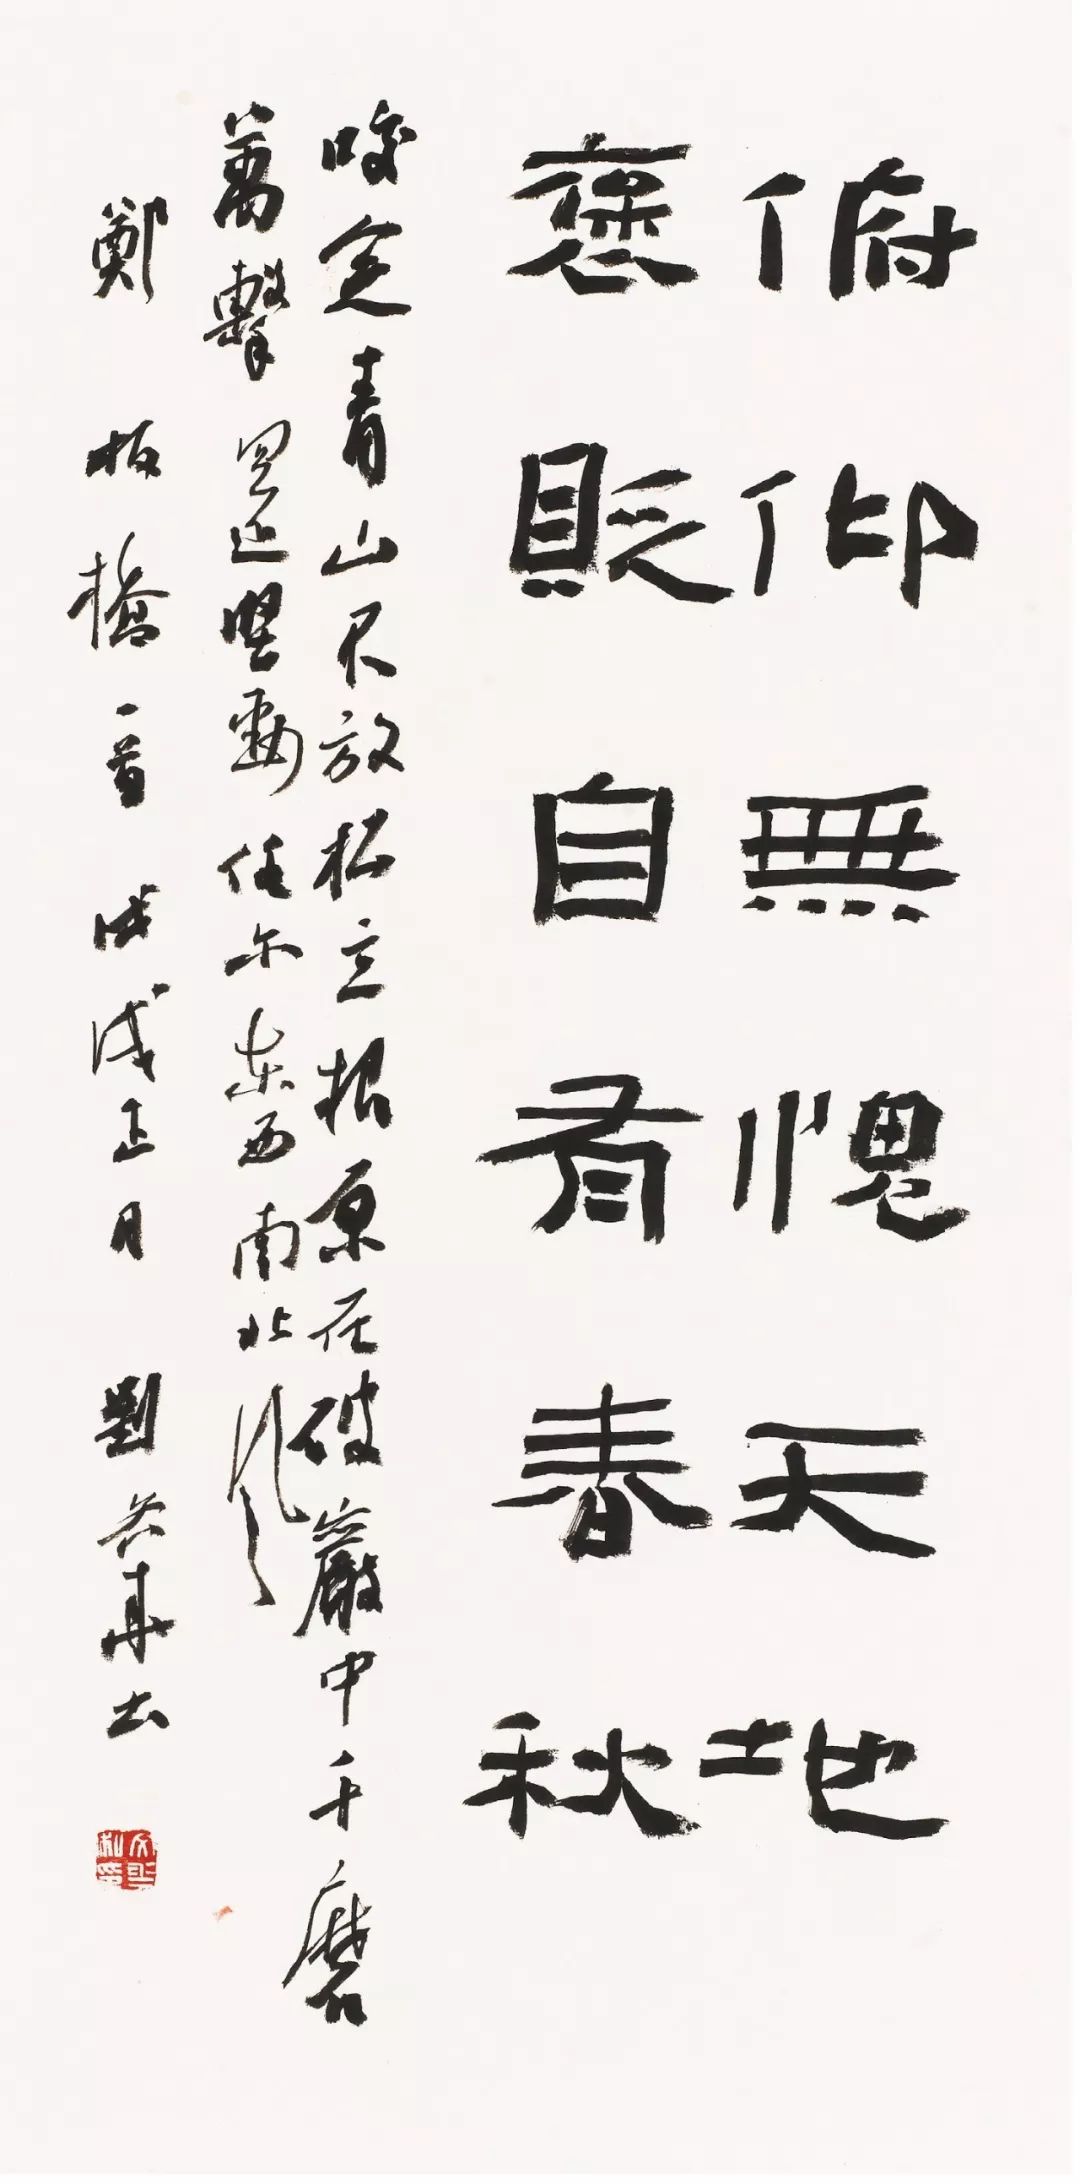 俯仰無愧天地
褒貶自有春秋
咬定青山不放松立根原在破巖中千磨
萬擊還堅勁任尔东西南北风
鄭板橋一首戊戌正月劉文華书